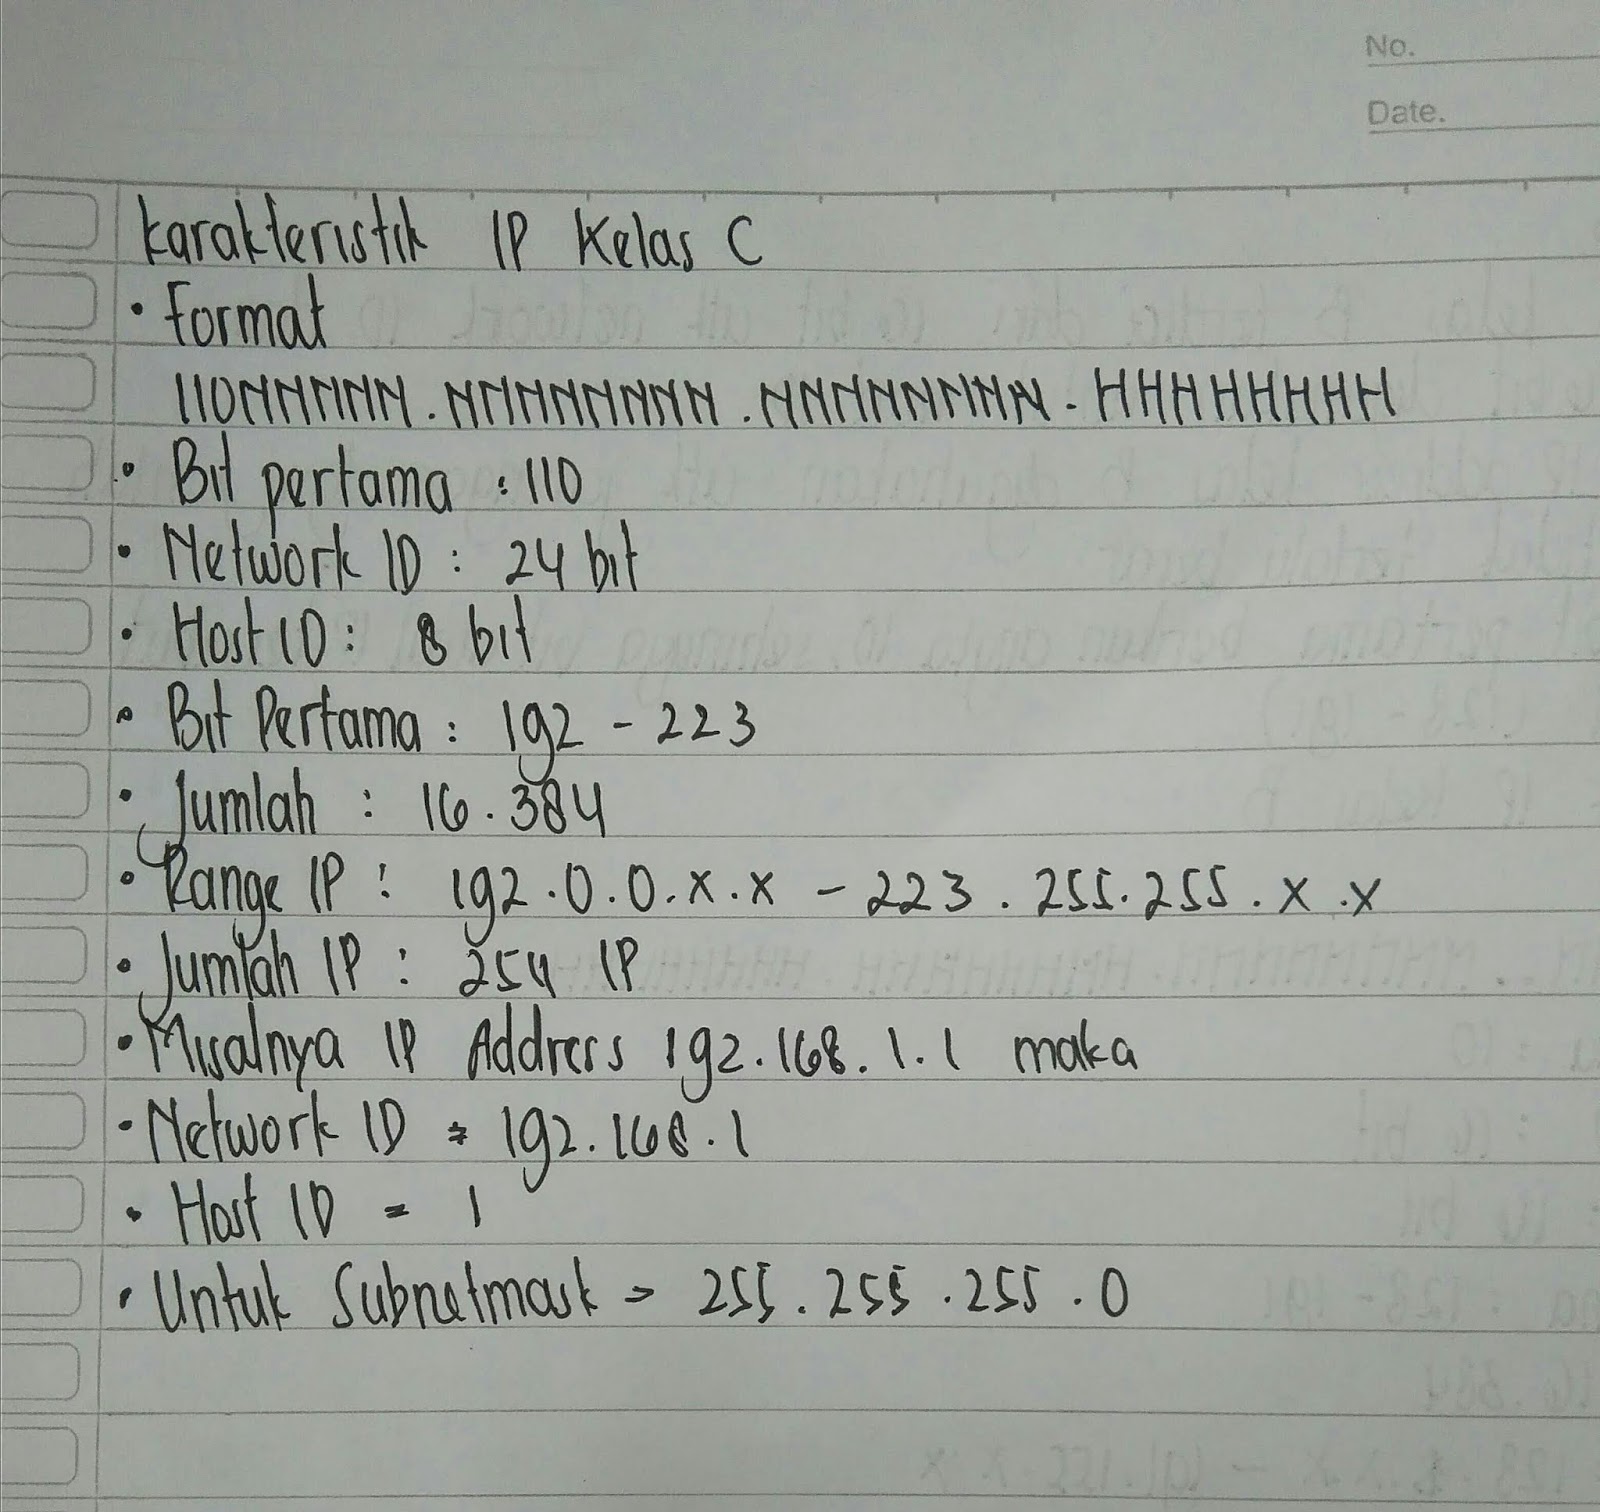 No.
Date.
Karakteristik IP Kelas C
• Format
110NNNNN.NNNNNNNN.NNNNNNNN.HHHHHHHH
• Bit pertama : 110
• Network ID : 24 bit
• Host ID : 8 bit
• Bit Pertama : 192 - 223
• Jumlah : 16.384
• Range IP : 192.0.0.x.x - 223.255.255.x.x
• Jumlah IP : 254 IP
• Misalnya IP Address 192.168.1.1 maka
• Network ID = 192.168.1
• Host ID = 1
• Untuk Subnetmask = 255.255.255.0